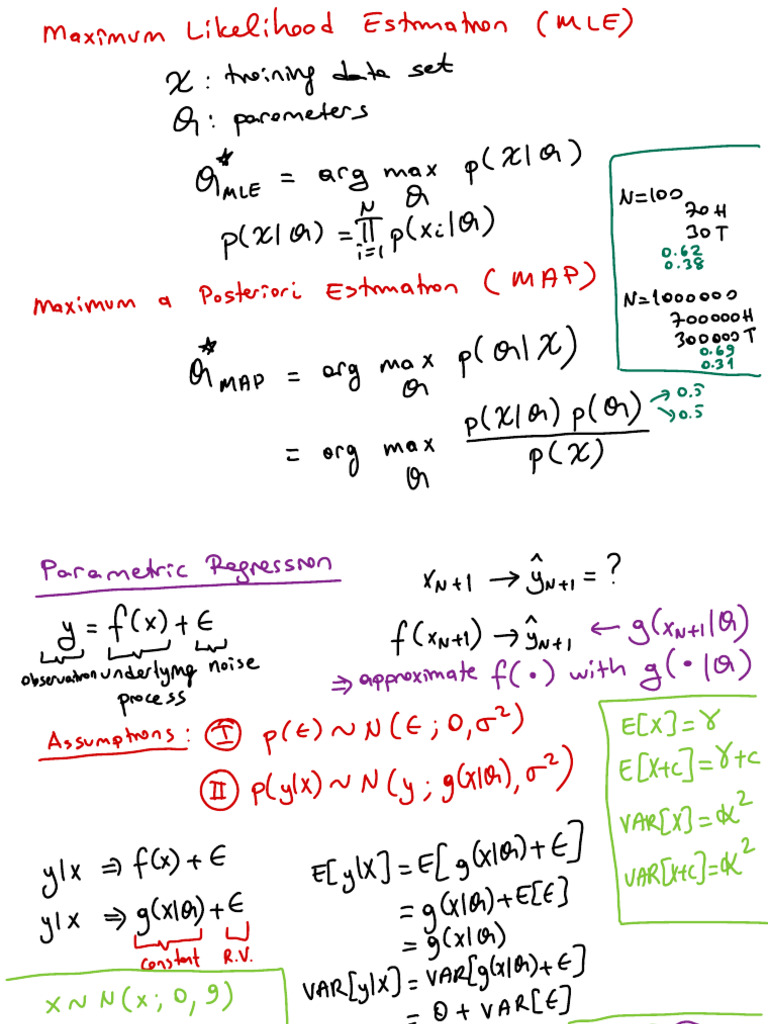 Maximum Likelihood Estimation (MLE)
X : training data set
θ : parameters
θ*MLE = arg max θ p(X|θ)
p(X|θ) = ∏ i=1 N p(xi|θ)
N=100
70H
30T
0.62
0.38
N=1000000
700000H
300000T
0.69
0.31
Maximum a Posteriori Estimation (MAP)
θ*MAP = arg max θ p(θ|X)
= arg max θ p(X|θ) p(θ) / p(X)
→ 0.5
→ 0.5
Parametric Regression
y = f(x) + ϵ
observation underlying process noise
xN+1 → ŷN+1 = ?
f(xN+1) → ŷN+1 ← g(xN+1|θ)
⇒ approximate f(·) with g(·|θ)
Assumptions : I p(ϵ) ~ N(ϵ; 0, σ²)
II p(y|x) ~ N(y; g(x|θ), σ²)
E[X] = γ
E[X+c] = γ+c
VAR[X] = α²
VAR[X+c] = α²
y|x ⇒ f(x) + ϵ
y|x ⇒ g(x|θ) + ϵ
constant R.V.
E[y|X] = E[g(x|θ) + ϵ]
= g(x|θ) + E[ϵ]
= g(x|θ)
VAR[y|X] = VAR[g(x|θ) + ϵ]
= 0 + VAR[ϵ]
x ~ N(x; 0, 9)